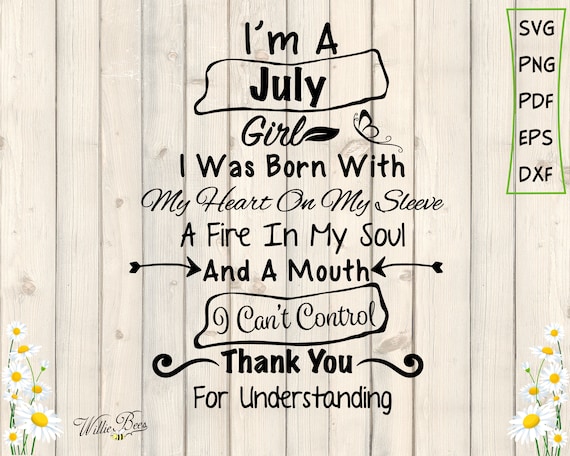 I'm A
July
Girl
I Was Born With
My Heart On My Sleeve
A Fire In My Soul
And A Mouth
I Can't Control
Thank You
For Understanding
SVG
PNG
PDF
EPS
DXF
Willie Bees